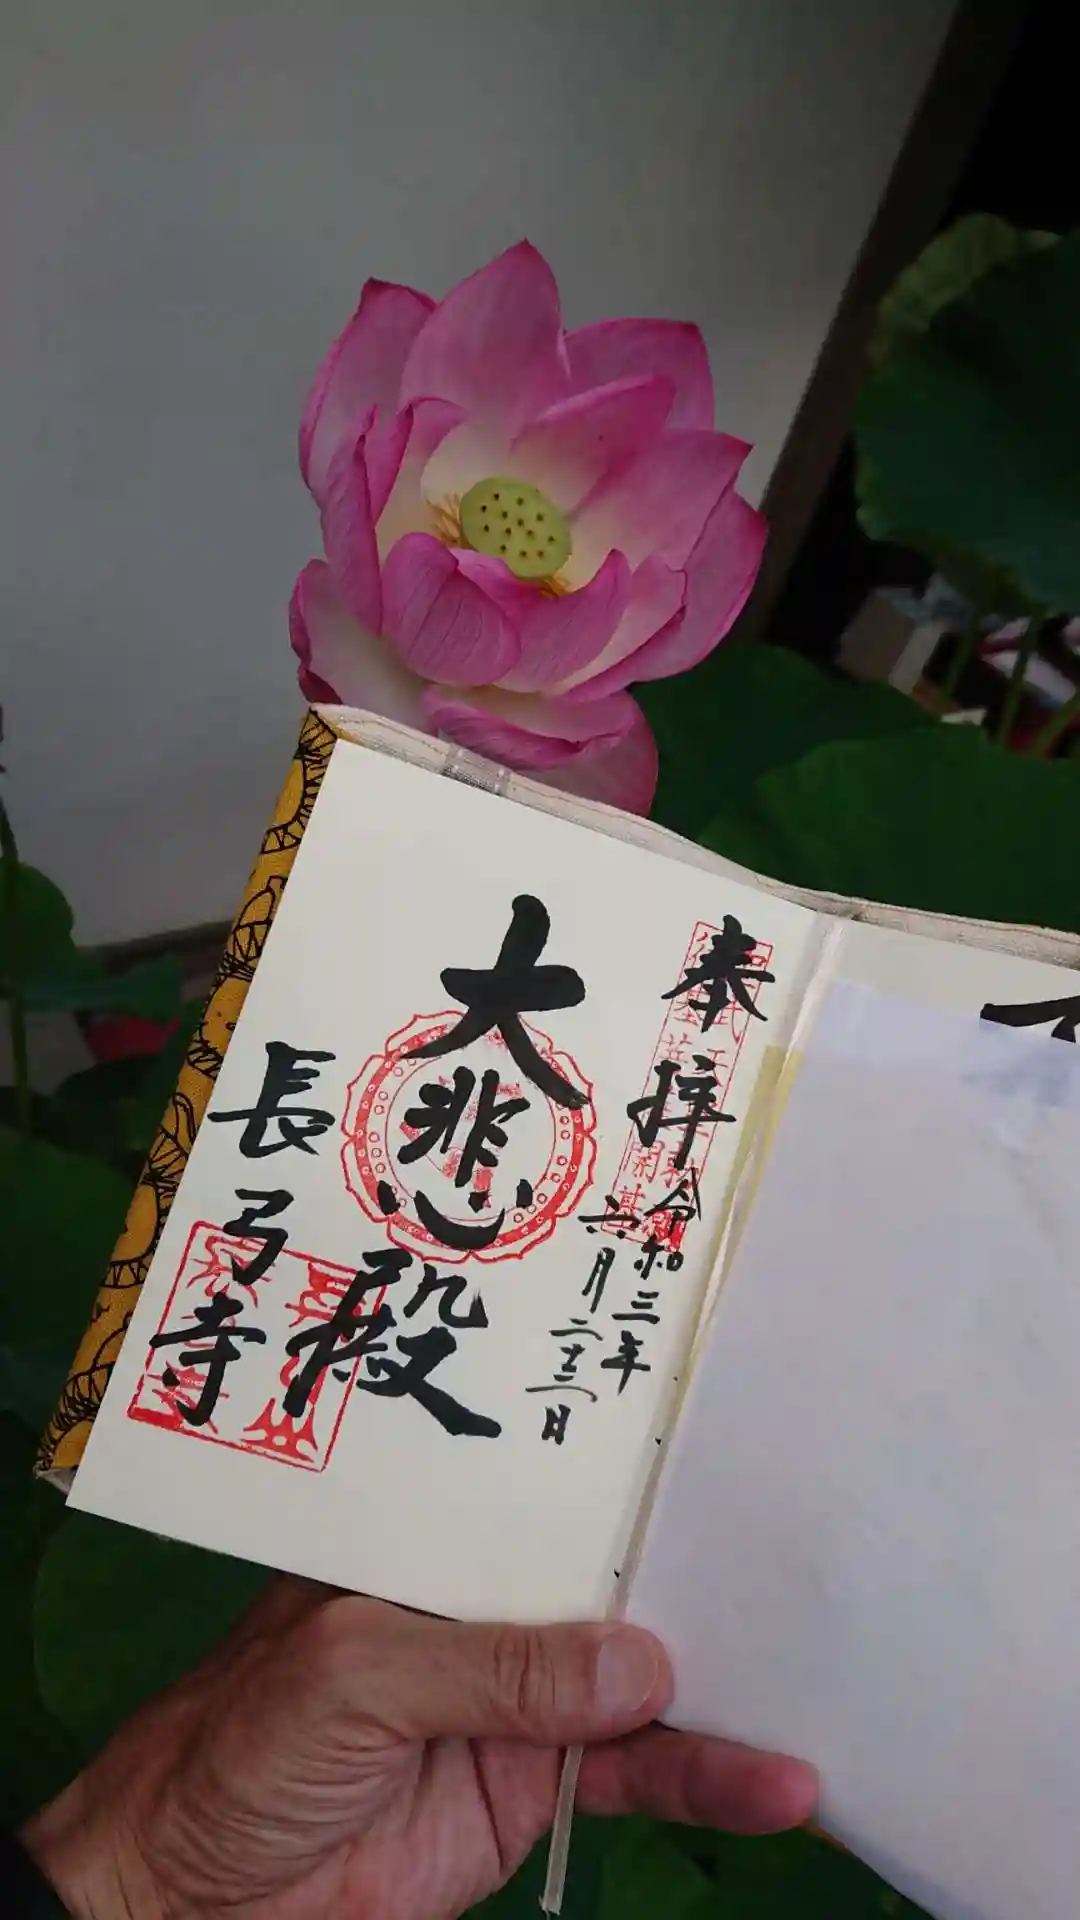 奉拝
令和三年
六月二十三日
大悲殿
長弓寺